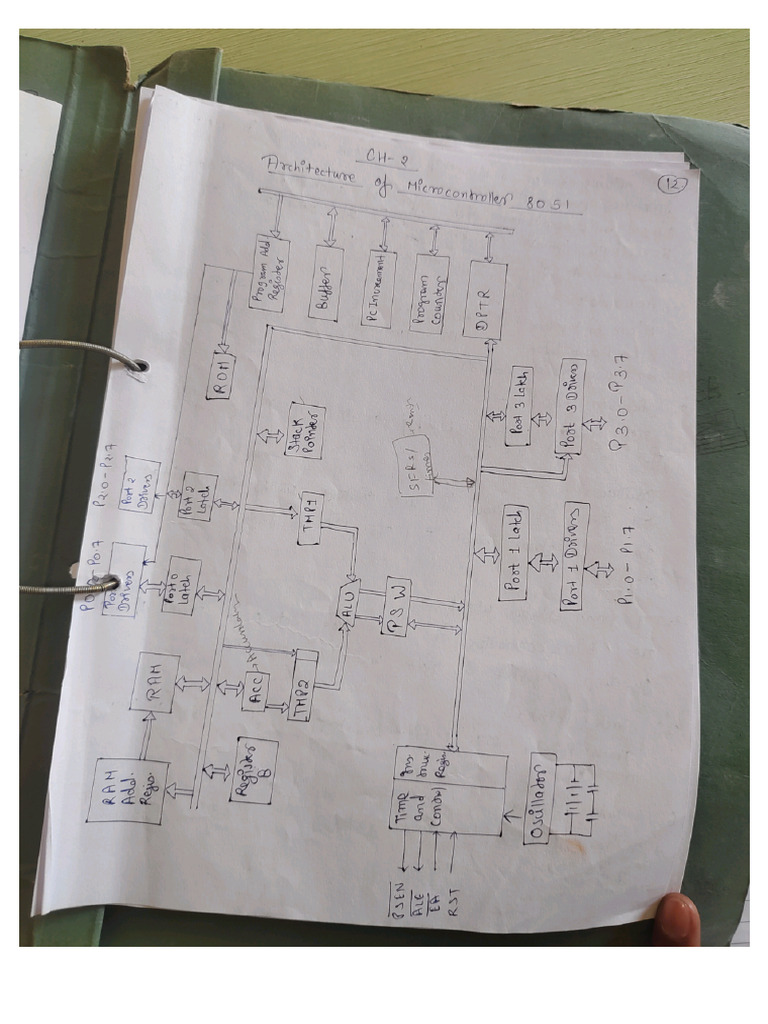 12
CH-2
Architecture of Microcontroller 8051
P0.0-P0.7
P2.0-P2.7
RAM
Add.
Regis.
RAM
Port
Drivers
Port 2
Drivers
Port 0
Latch
Port 2
Latch
ROM
Program Add
Register
Buffer
PC Increament
Program
Counter
DPTR
Register
B
ACC
TMP2
TMP1
Stack
Pointer
ALU
PSW
SFRs/
PSEN
ALE
EA
RST
Time
and
Control
Ins
truc
Regis
Oscillator
Port 1 Latch
Port 1 Drivers
P1.0-P1.7
Port 3 Latch
Port 3 Drivers
P3.0-P3.7